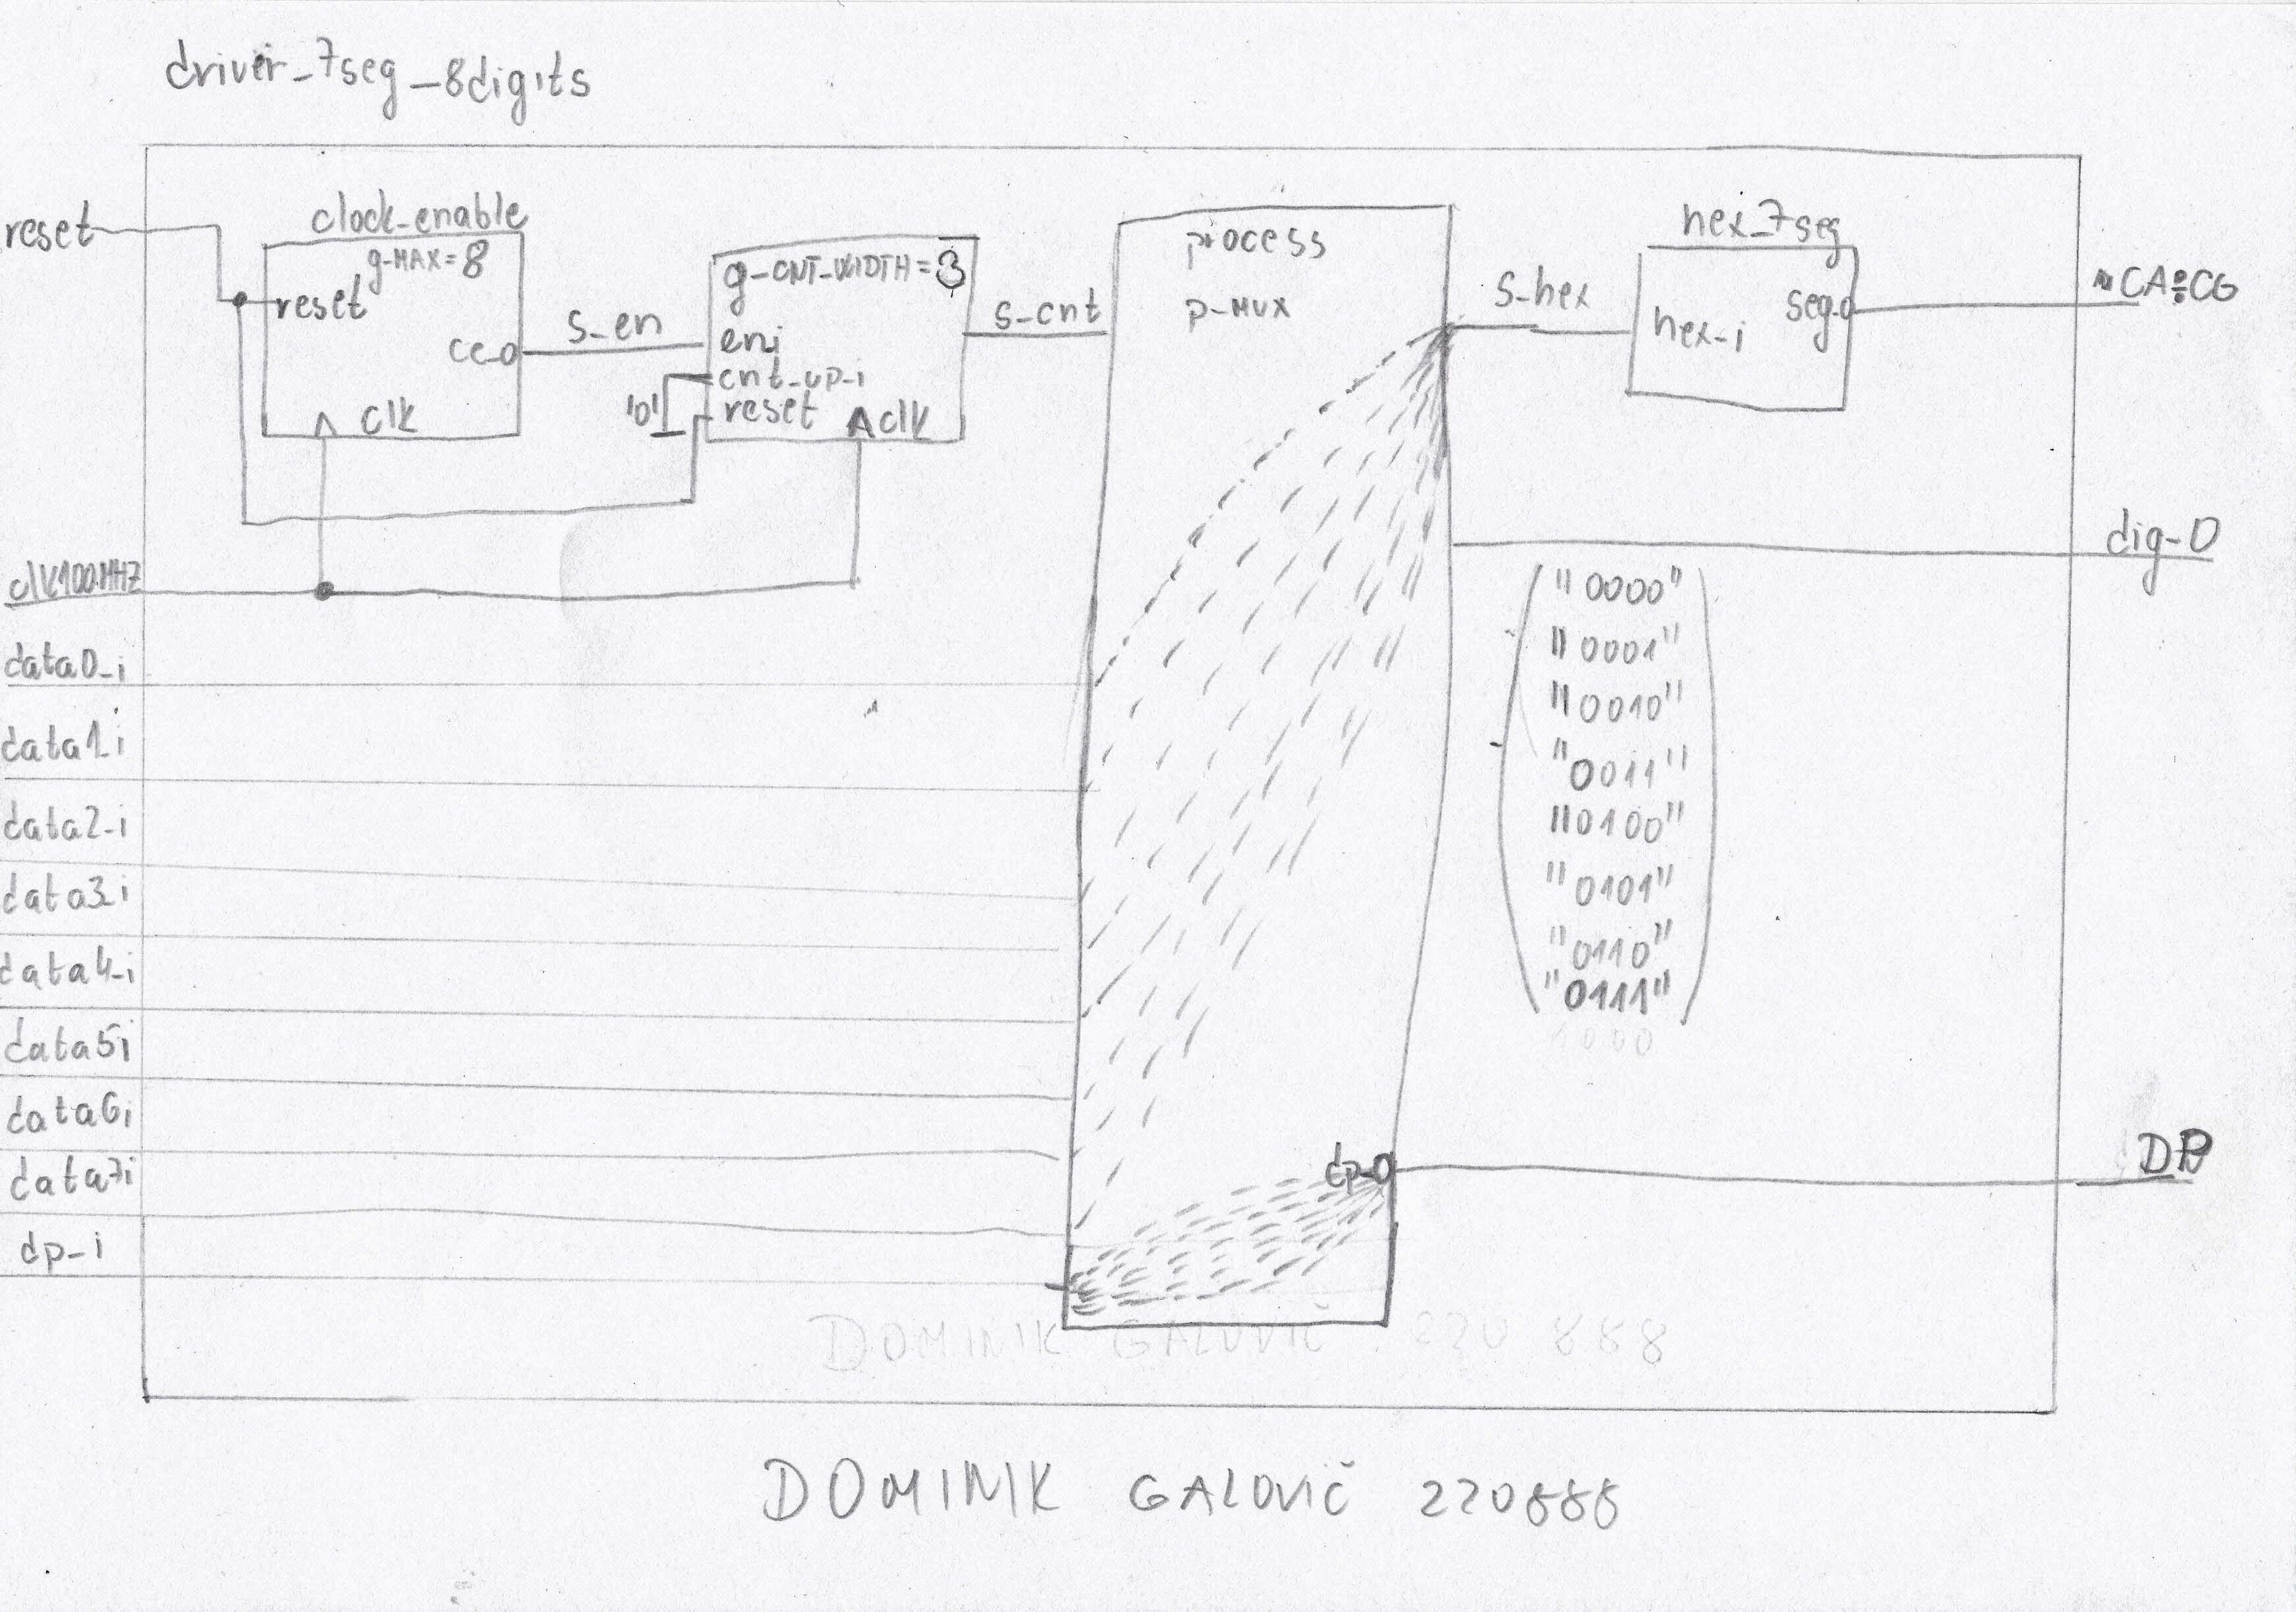 driver_7seg_8digits
reset
clock_enable
g-MAX=8
reset
ce_o
clk
s_en
g-CNT-WIDTH=3
en_i
cnt_up_i
reset
clk
'0'
s_cnt
process
p-MUX
s_hex
hex_7seg
hex_i
seg_o
CA:CG
dig-O
clk100MHZ
data0_i
data1_i
data2_i
data3_i
data4_i
data5i
data6i
data7i
dp_i
"0000"
"0001"
"0010"
"0011"
"0100"
"0101"
"0110"
"0111"
1000
dp_o
DP
DOMINIK GALOVIČ 220 888
DOMINIK GALOVIČ 220888